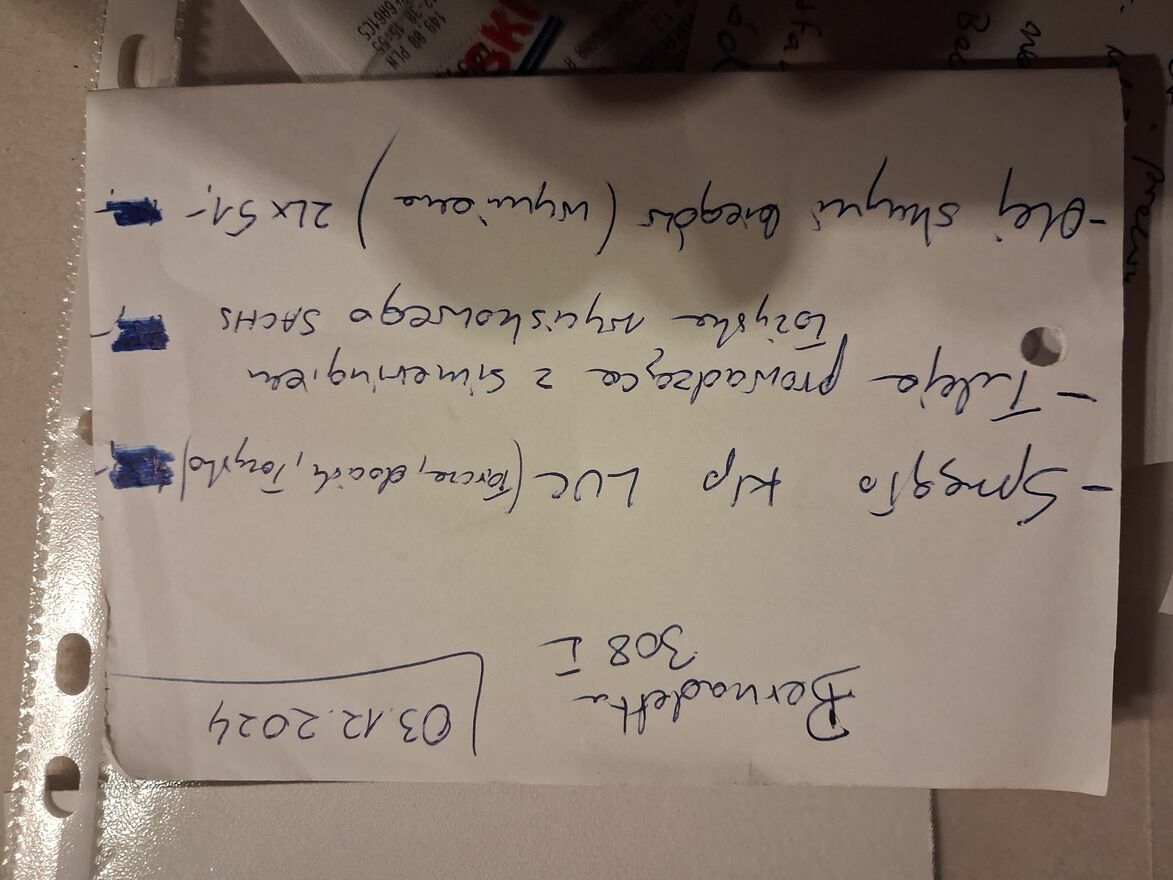 03.12.2024
Bernadetta
308 I
- Sprzęgło klp LUC (Tarcze, docisk, Łożysko)
- Tuleja prowadząca z simeringiem
Łożyska wyciskowego SACHS
- Olej skrzyni biegów (wymiana) 2L x 51,-
149 00 PLN